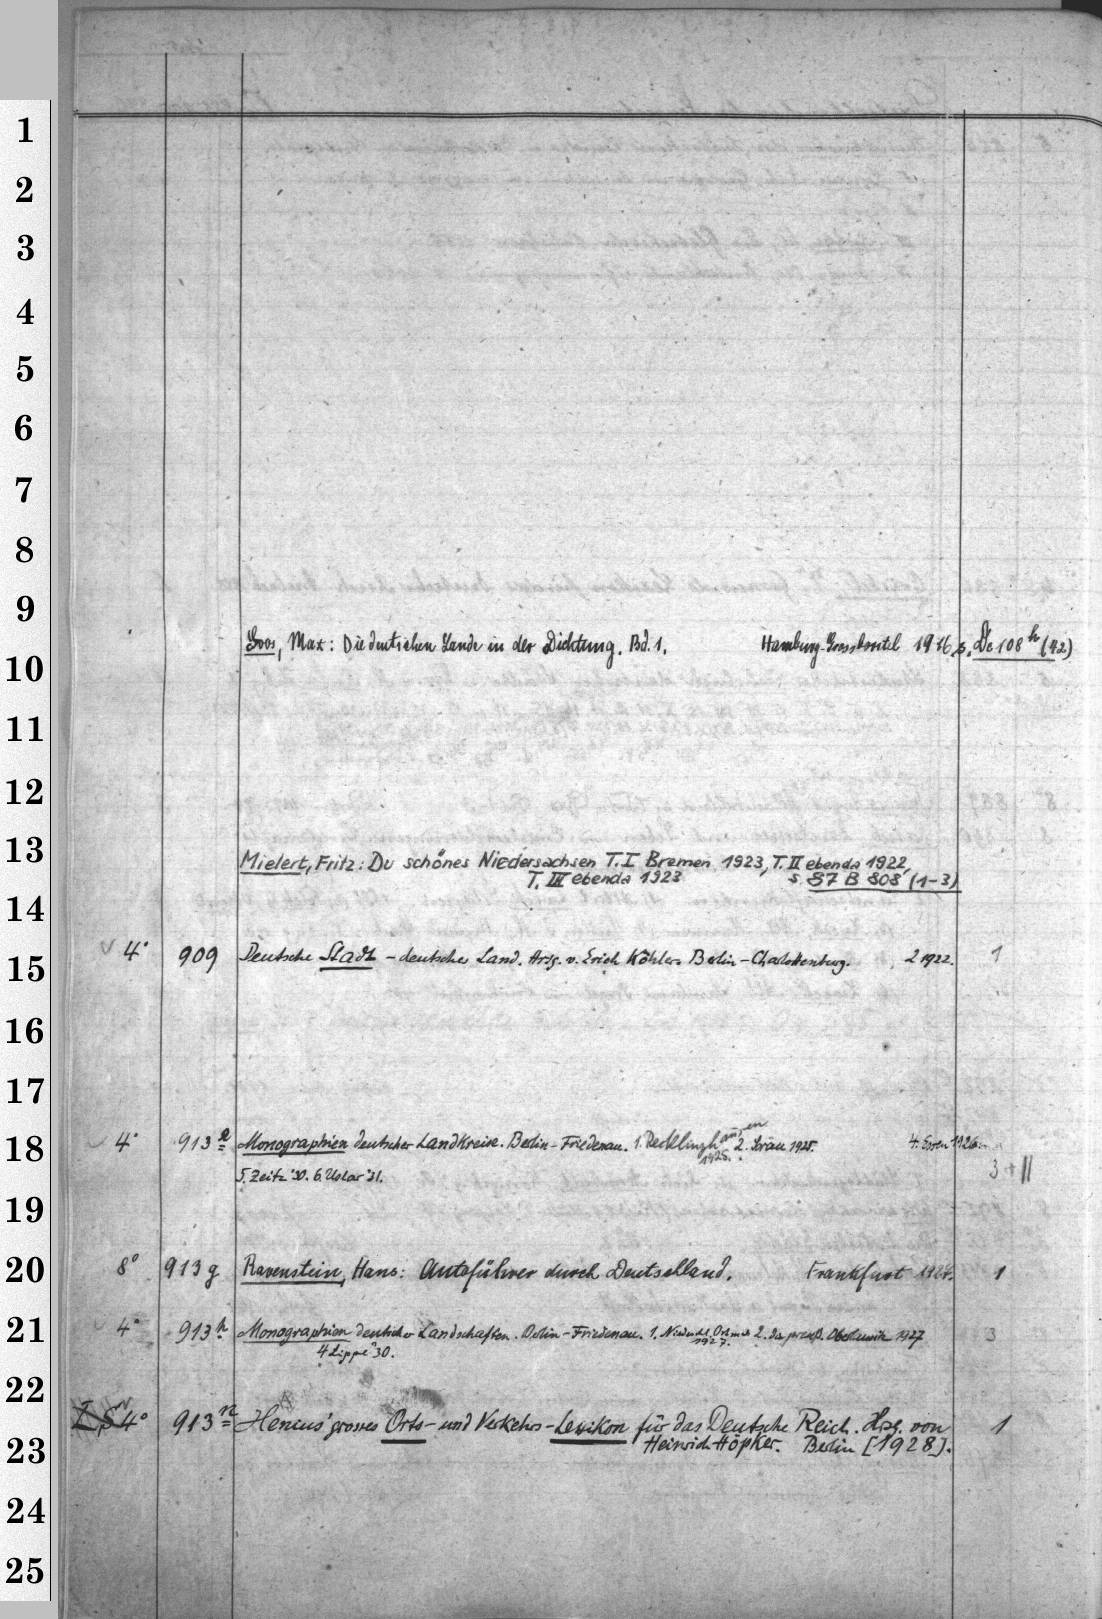 1
2
3
4
5
6
7
8
9
Loos, Max: Die deutschen Lande in der Dichtung. Bd. 1. Hamburg- 1916 s. De 108 h (42)
10
11
12
13
Mielert, Fritz: Du schönes Niedersachsen T. I Bremen 1923, T. II ebenda 1922,
T. III ebenda 1923 s. 87 B 808 (1-3)
14
4° 909 Deutsche Stadt - deutsche Land. Hrsg. v. Erich Köhler. Berlin-Charlottenburg. 2 1922. 1
15
16
17
4° 913 e Monographien deutscher Landkreise. Berlin-Friedenau. 1. Recklinghausen 1925. 2. Sorau 1925. 4. Essen 1926.
18
5. Zeitz '30. 6. Uslar '31. 3 + ||
19
8° 913 g Ravenstein, Hans: Autoführer durch Deutschland. Frankfurt 1927. 1
20
4° 913 h Monographien deutscher Landschaften. Berlin-Friedenau. 1. 1927. 2. 1927 3
21
4 Lippe '30.
22
4° 913 n Henius' grosses Orts- und Verkehrs-Lexikon für das Deutsche Reich. Hrsg. von 1
Heinrich Höpker. Berlin [1928].
23
24
25